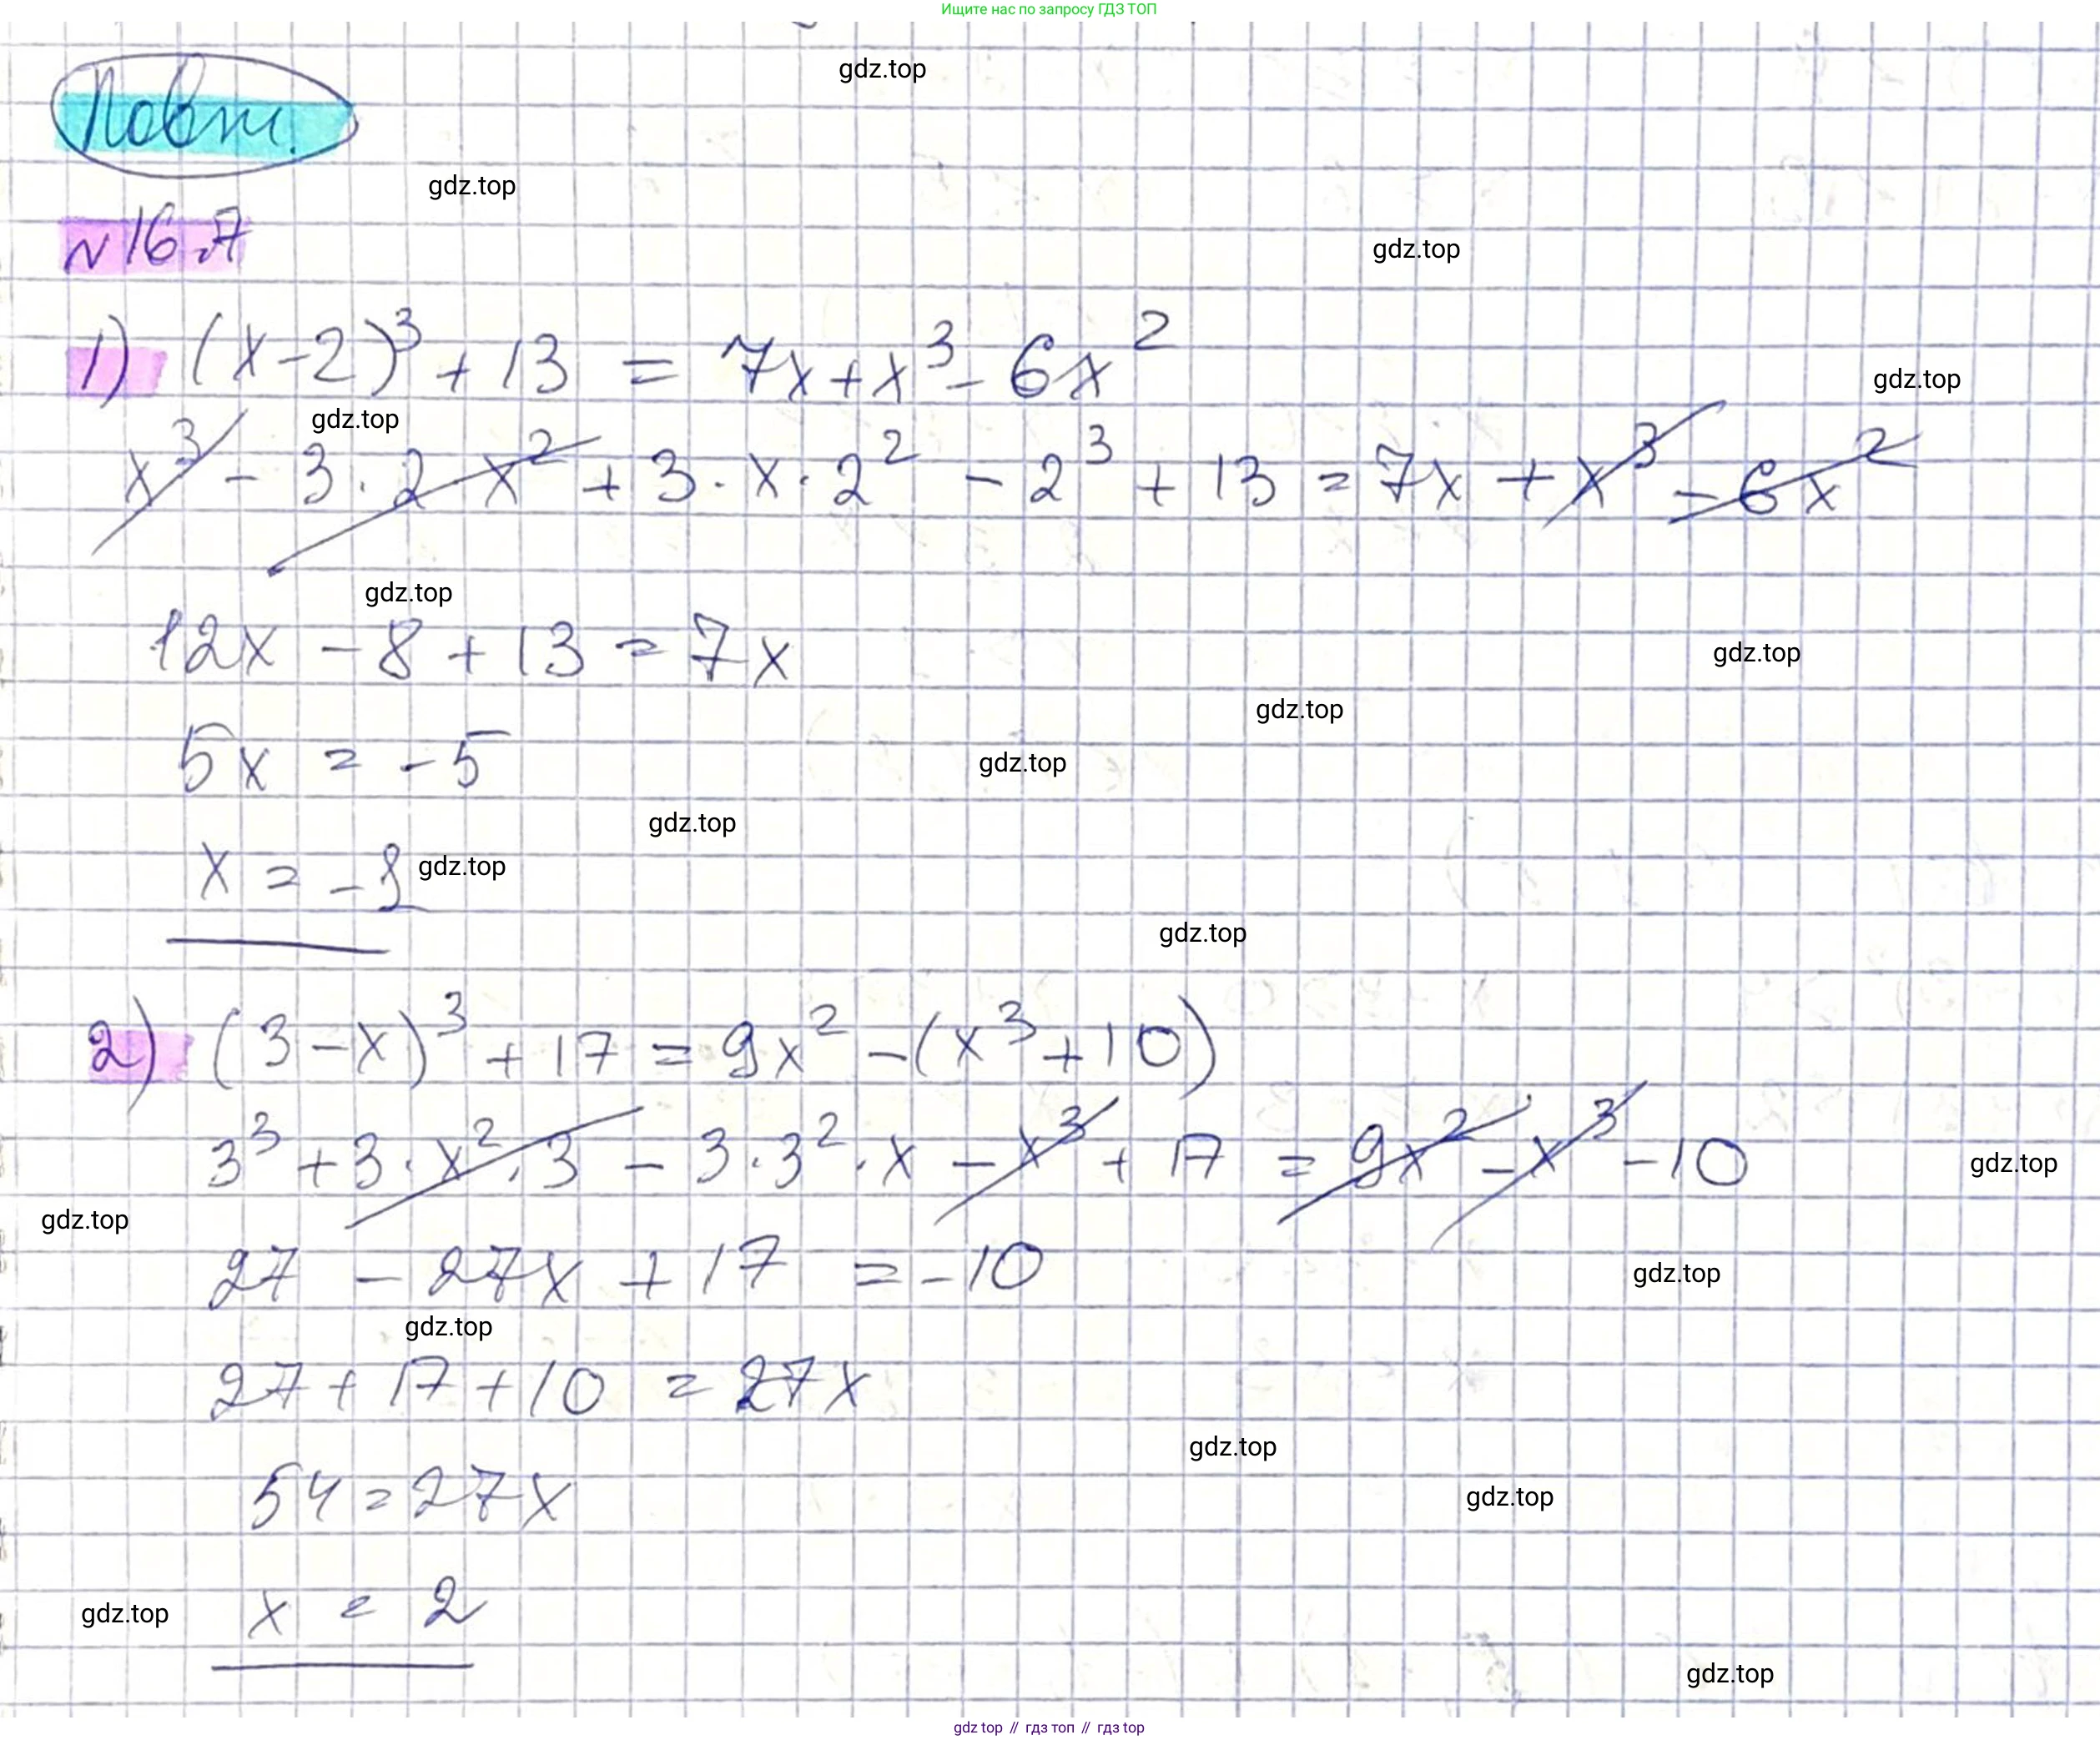 Ищите нас по запросу ГДЗ ТОП
gdz.top
Повт.
gdz.top
№ 16.7
gdz.top
1) (x-2)³ + 13 = 7x + x³ - 6x²
gdz.top
gdz.top
x³ - 3 · 2 · x² + 3 · x · 2² - 2³ + 13 = 7x + x³ - 6x²
gdz.top
12x - 8 + 13 = 7x
gdz.top
gdz.top
5x = -5
gdz.top
gdz.top
x = -1
gdz.top
gdz.top
2) (3-x)³ + 17 = 9x² - (x³ + 10)
3³ + 3 · x² · 3 - 3 · 3² · x - x³ + 17 = 9x² - x³ - 10
gdz.top
gdz.top
27 - 27x + 17 = -10
gdz.top
gdz.top
27 + 17 + 10 = 27x
gdz.top
54 = 27x
gdz.top
x = 2
gdz.top
gdz.top
gdz top // гдз топ // гдз top